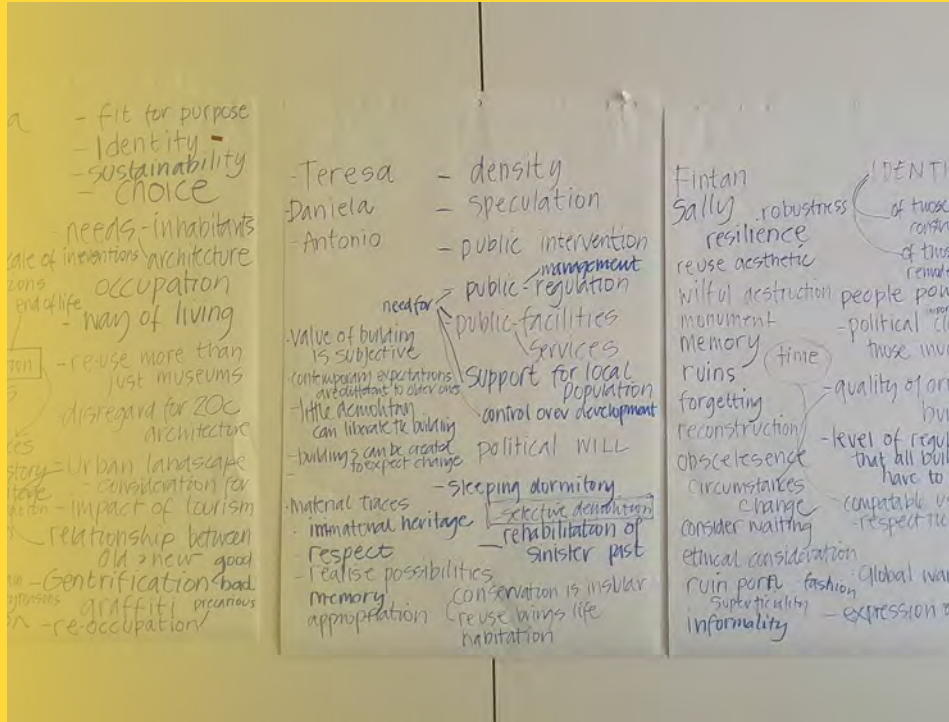 - fit for purpose
- Identity -
- sustainability
- choice
- needs - inhabitants
scale of interventions architecture
occupation
end of life
- way of living
- re-use more than
just museums
disregard for 20c
architecture
= Urban landscape
- consideration for
- impact of tourism
relationship between
old > new good
- Gentrification < bad
graffiti precarious
- re-occupation
- Teresa
- Daniela
- Antonio
- density
- speculation
- public intervention
management
- public - regulation
need for
public - facilities
services
support for local
population
control over development
political WILL
- value of building
is subjective
- contemporary expectations
are different to older ones
- little demolition
can liberate the building
- buildings can be created
to expect change
-
- sleeping dormitory
selective demolition
- rehabilitation of
sinister past
- material traces
immaterial heritage
- respect
- realise possibilities
memory
appropriation
conservation is insular
reuse brings life
habitation
Fintan
Sally
. robustness
resilience
reuse aesthetic
wilful destruction
monument
memory
ruins
time
forgetting
reconstruction
obscelesence
circumstances
change
consider waiting
ethical consideration
ruin porn fashion
superficiality
informality
IDENTI
of those
of thos
people pow
- political cl
those inv
- quality of ori
- level of regul
that all buil
have to
compatable u
- respect
Global war
- expression